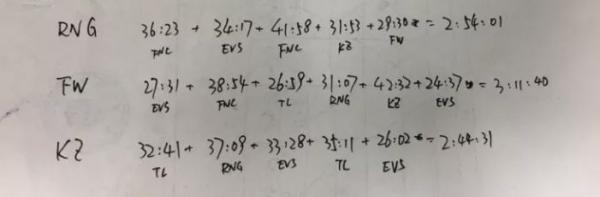 RNG 36:23 + 34:17 + 41:58 + 31:53 + 29:30 = 2:54:01
FNC EVS FNC KZ FW
FW 27:31 + 38:54 + 26:59 + 31:07 + 42:32 + 24:37 = 3:11:40
EVS FNC TL RNG KZ EVS
KZ 32:41 + 37:09 + 33:28 + 35:11 + 26:02 = 2:44:31
TL RNG EVS TL EVS